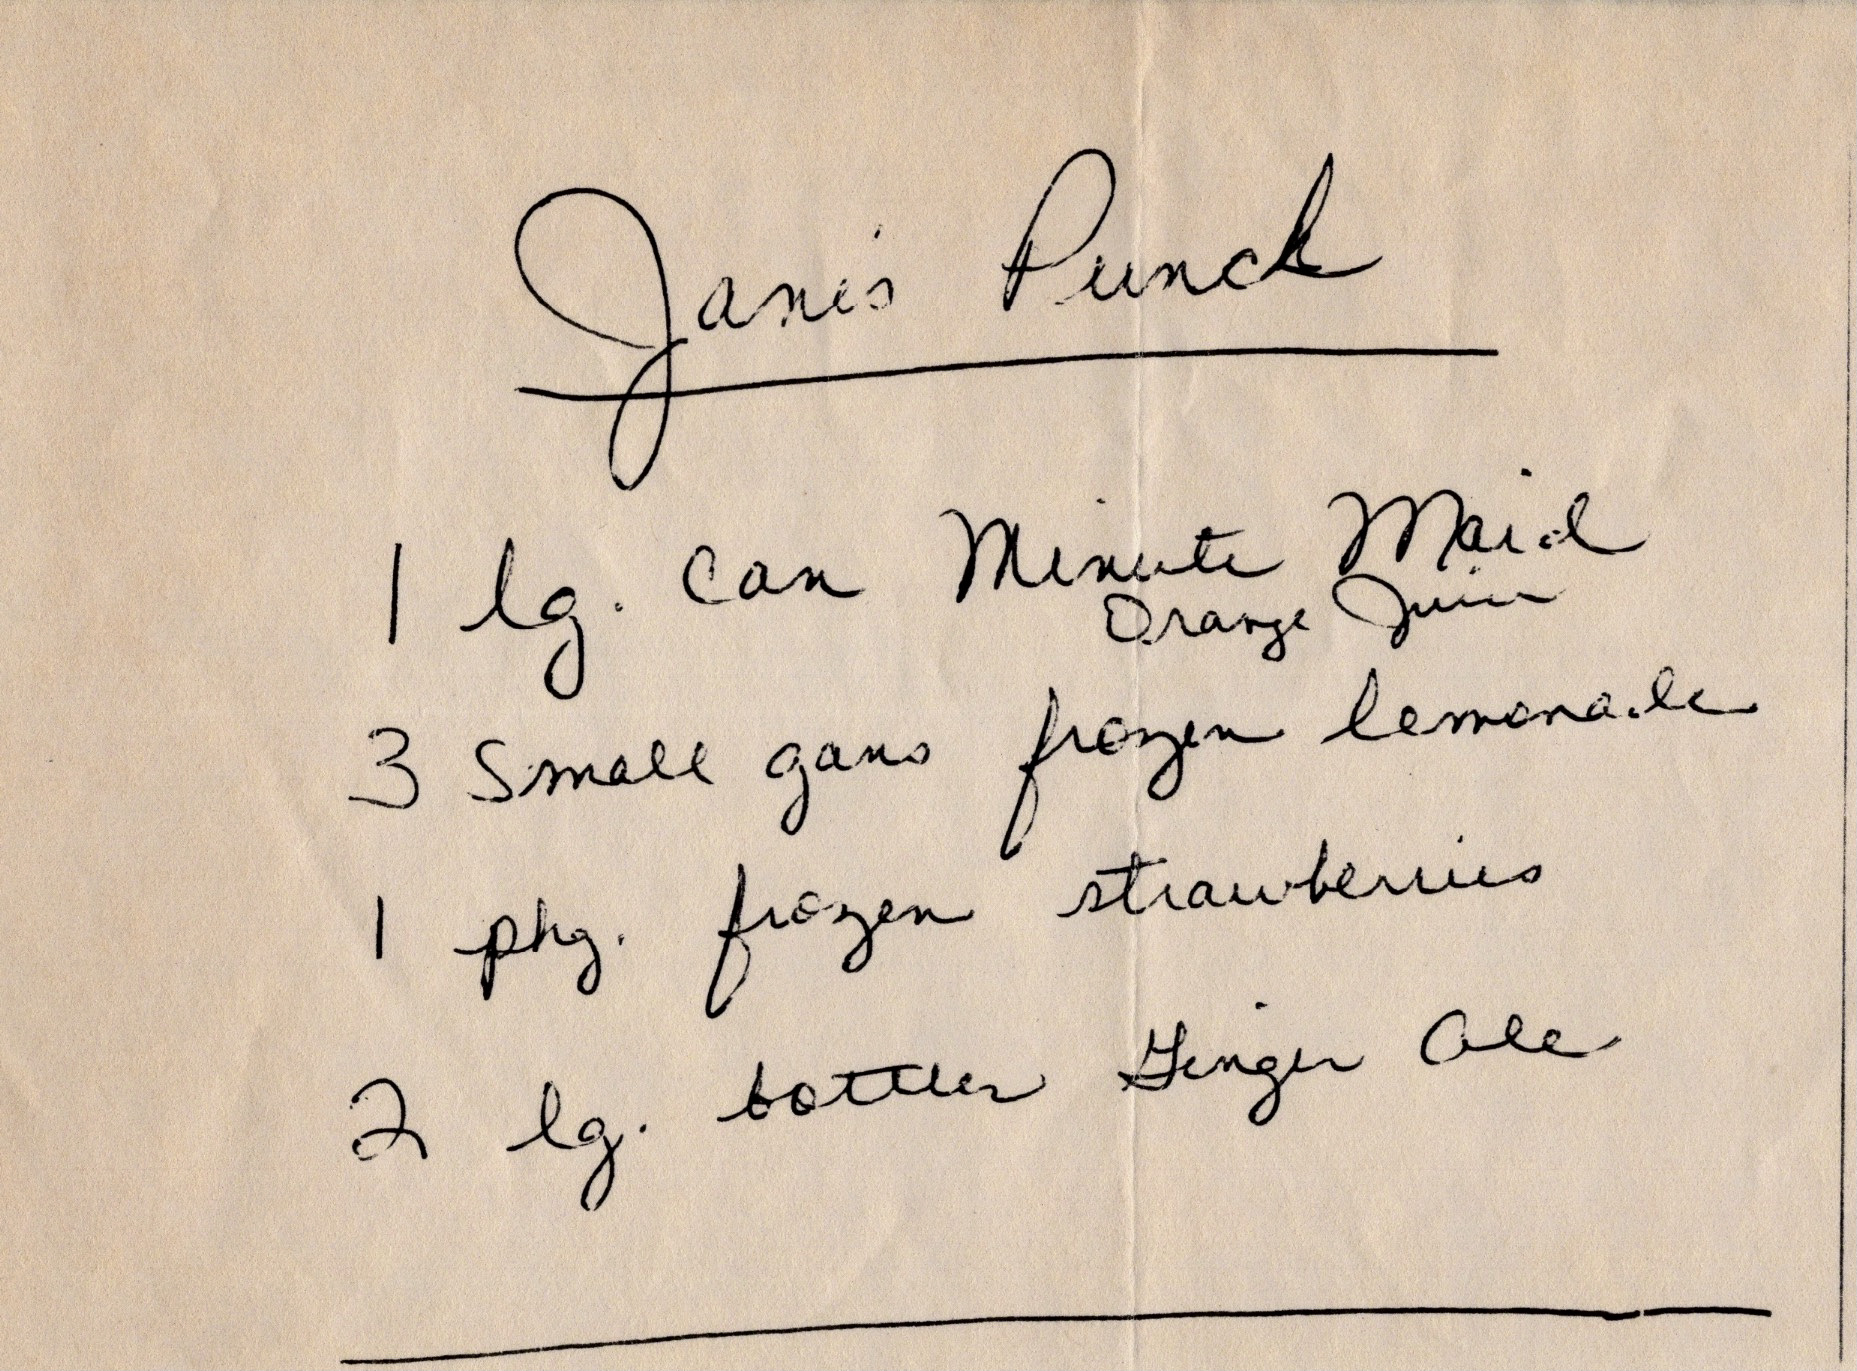 Janis Punch
1 lg. can Minute Maid
Orange Juice
3 Small gans frozen lemonade
1 pkg. frozen strawberries
2 lg. bottles Ginger Ale